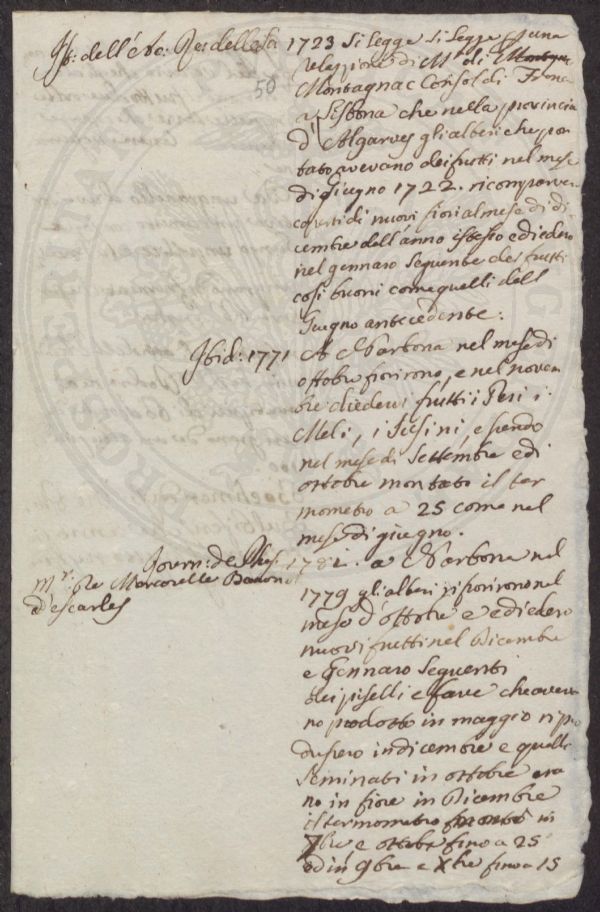 1723 si legge si legge una
relazione di Mr di Montagna
Montagnac Consol di Francia
a Lisbona che nella provincia
d'Algarves gli alberi che por
tato avevano dei frutti nel mese
di Giugno 1722. ricomparver
coverti di nuovi fiori al mese di di
cembre dell'anno istesso e diedero
nel gennaro seguente dei frutti
così buoni come quelli dell
Giugno antecedente.
50
Ibid: 1771 A Narbona nel mese di
ottobre fiorirono, e nel novem
bre diedero frutti i Peri i
Meli, i Susini, essendo
nel mese di Settembre e di
ottobre montato il ter
mometro a 25 come nel
mese di giugno.
Journ: de Phis 1781. a Narbona nel
Mr. De Marcorelle Baron
d'Escarles
1779 gli alberi rifiorirono nel
mese d'ottobre e diedero
nuovi frutti nel Dicembre
e Gennaro seguenti
dei piselli e fave che aveva
no prodotto in maggio ripro
dussero in dicembre e quelli
seminati in ottobre era
no in fiore in Dicembre
il termometro montò in
7bre e ottobre fino a 25
ed in 9bre e Xbre fino a 15